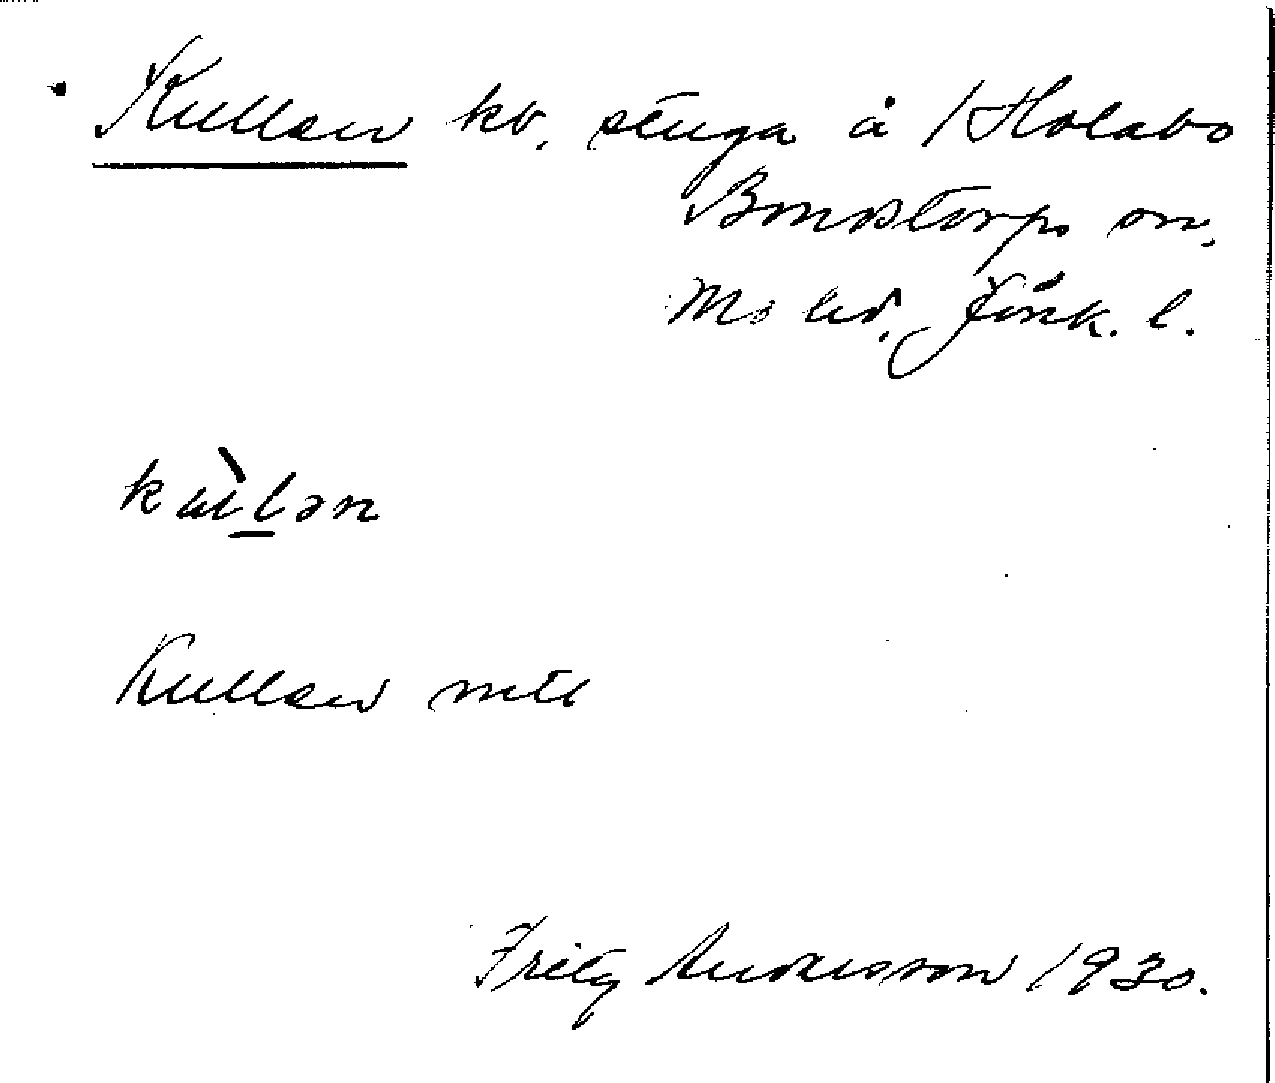 Kullen kv. stuga å Holabo
Bondstorps sn.
Mo hd. Jönk. l.
kullən
Kullen mtl
Fritz Andersson 1930.